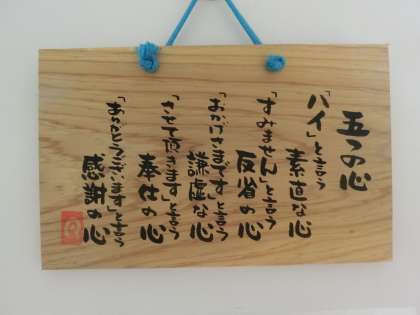 五つの心
「ハイ」と言う
素直な心
「すみません」と言う
反省の心
「おかげさまです」と言う
謙虚な心
「させて頂きます」と言う
奉仕の心
「ありがとうございます」と言う
感謝の心